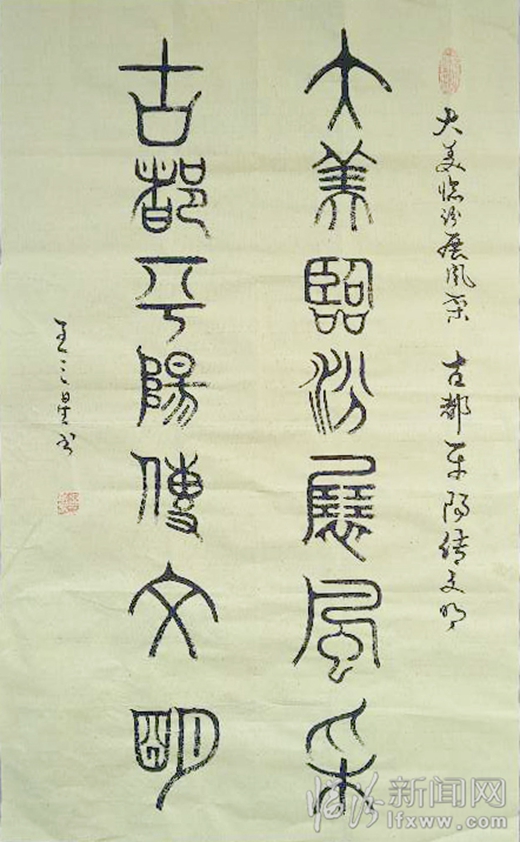 大美临汾展风采 古都平阳传文明
大美臨汾展風采
古都平陽傳文明
王三星书
临汾新闻网
lfxww.com